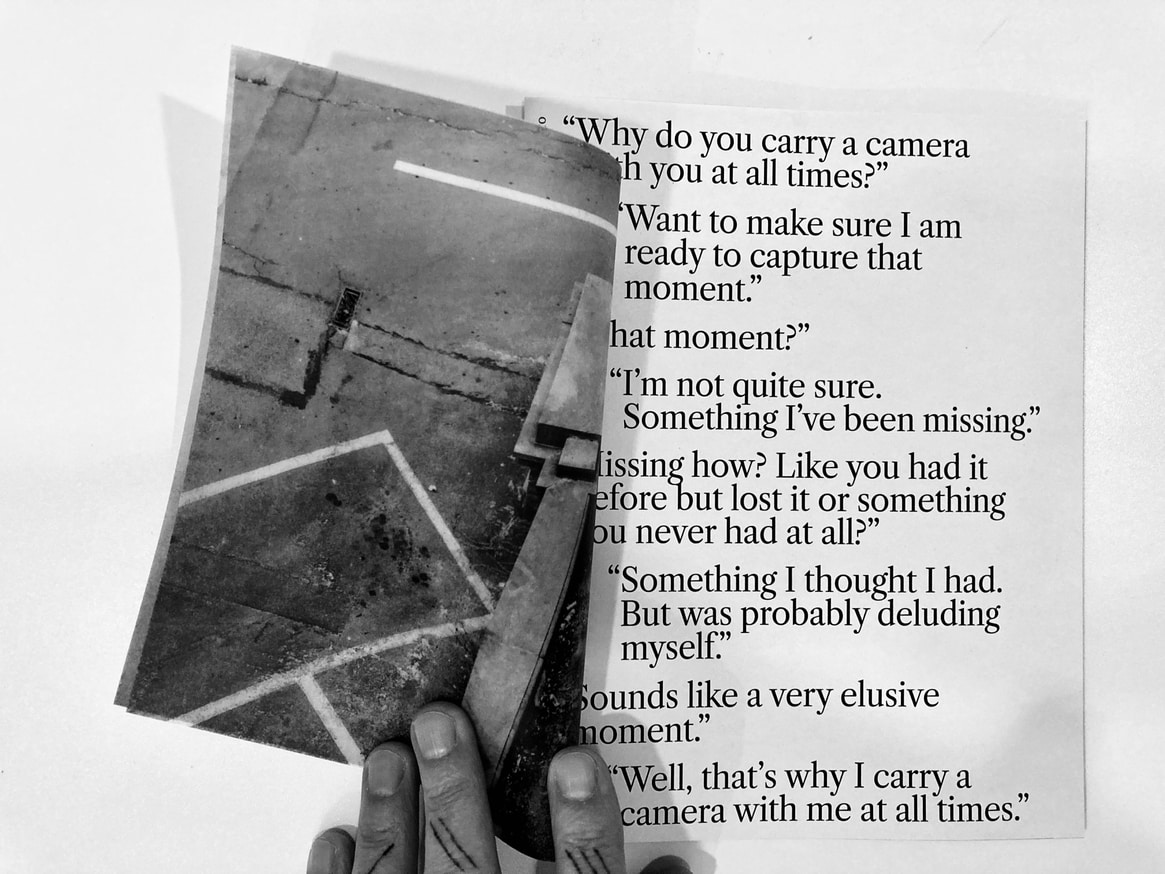 “Why do you carry a camera
th you at all times?”
“Want to make sure I am
ready to capture that
moment.”
hat moment?”
“I’m not quite sure.
Something I’ve been missing.”
issing how? Like you had it
efore but lost it or something
ou never had at all?”
“Something I thought I had.
But was probably deluding
myself.”
Sounds like a very elusive
moment.”
“Well, that’s why I carry a
camera with me at all times.”